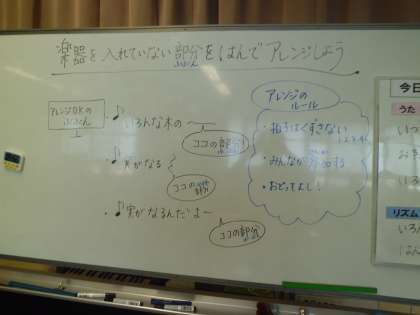 楽器を入れていない部分をはんでアレンジしよう
アレンジOKの
♪いろんな木の
ココの部分
♪実がなる
ココの部分
♪実がなるんだよー
ココの部分
アレンジの
ルール
・拍子はくずさない
・みんなが参加する
・おどってよし!
今日
うた
いつ
いろ
リズム
いろ
はん